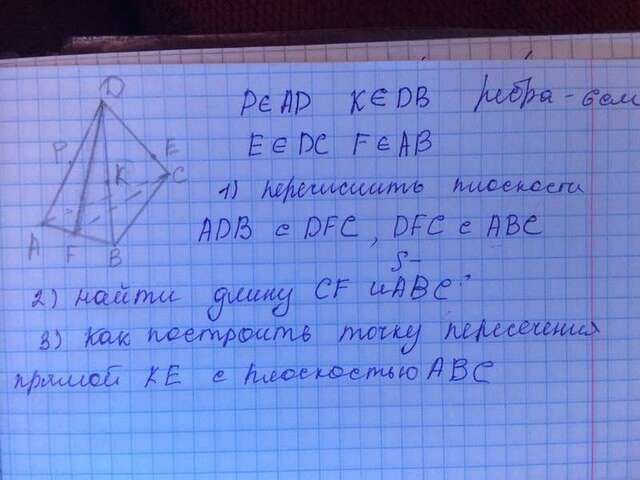 D
P∈AD K∈DB ребра - 6 см
E∈DC F∈AB
P
E
K
C
A
F
B
1) перечислить плоскости
ADB с DFC, DFC с ABC
S-
2) найти длину CF и ABC
3) как построить точку пересечения
прямой KE с плоскостью ABC